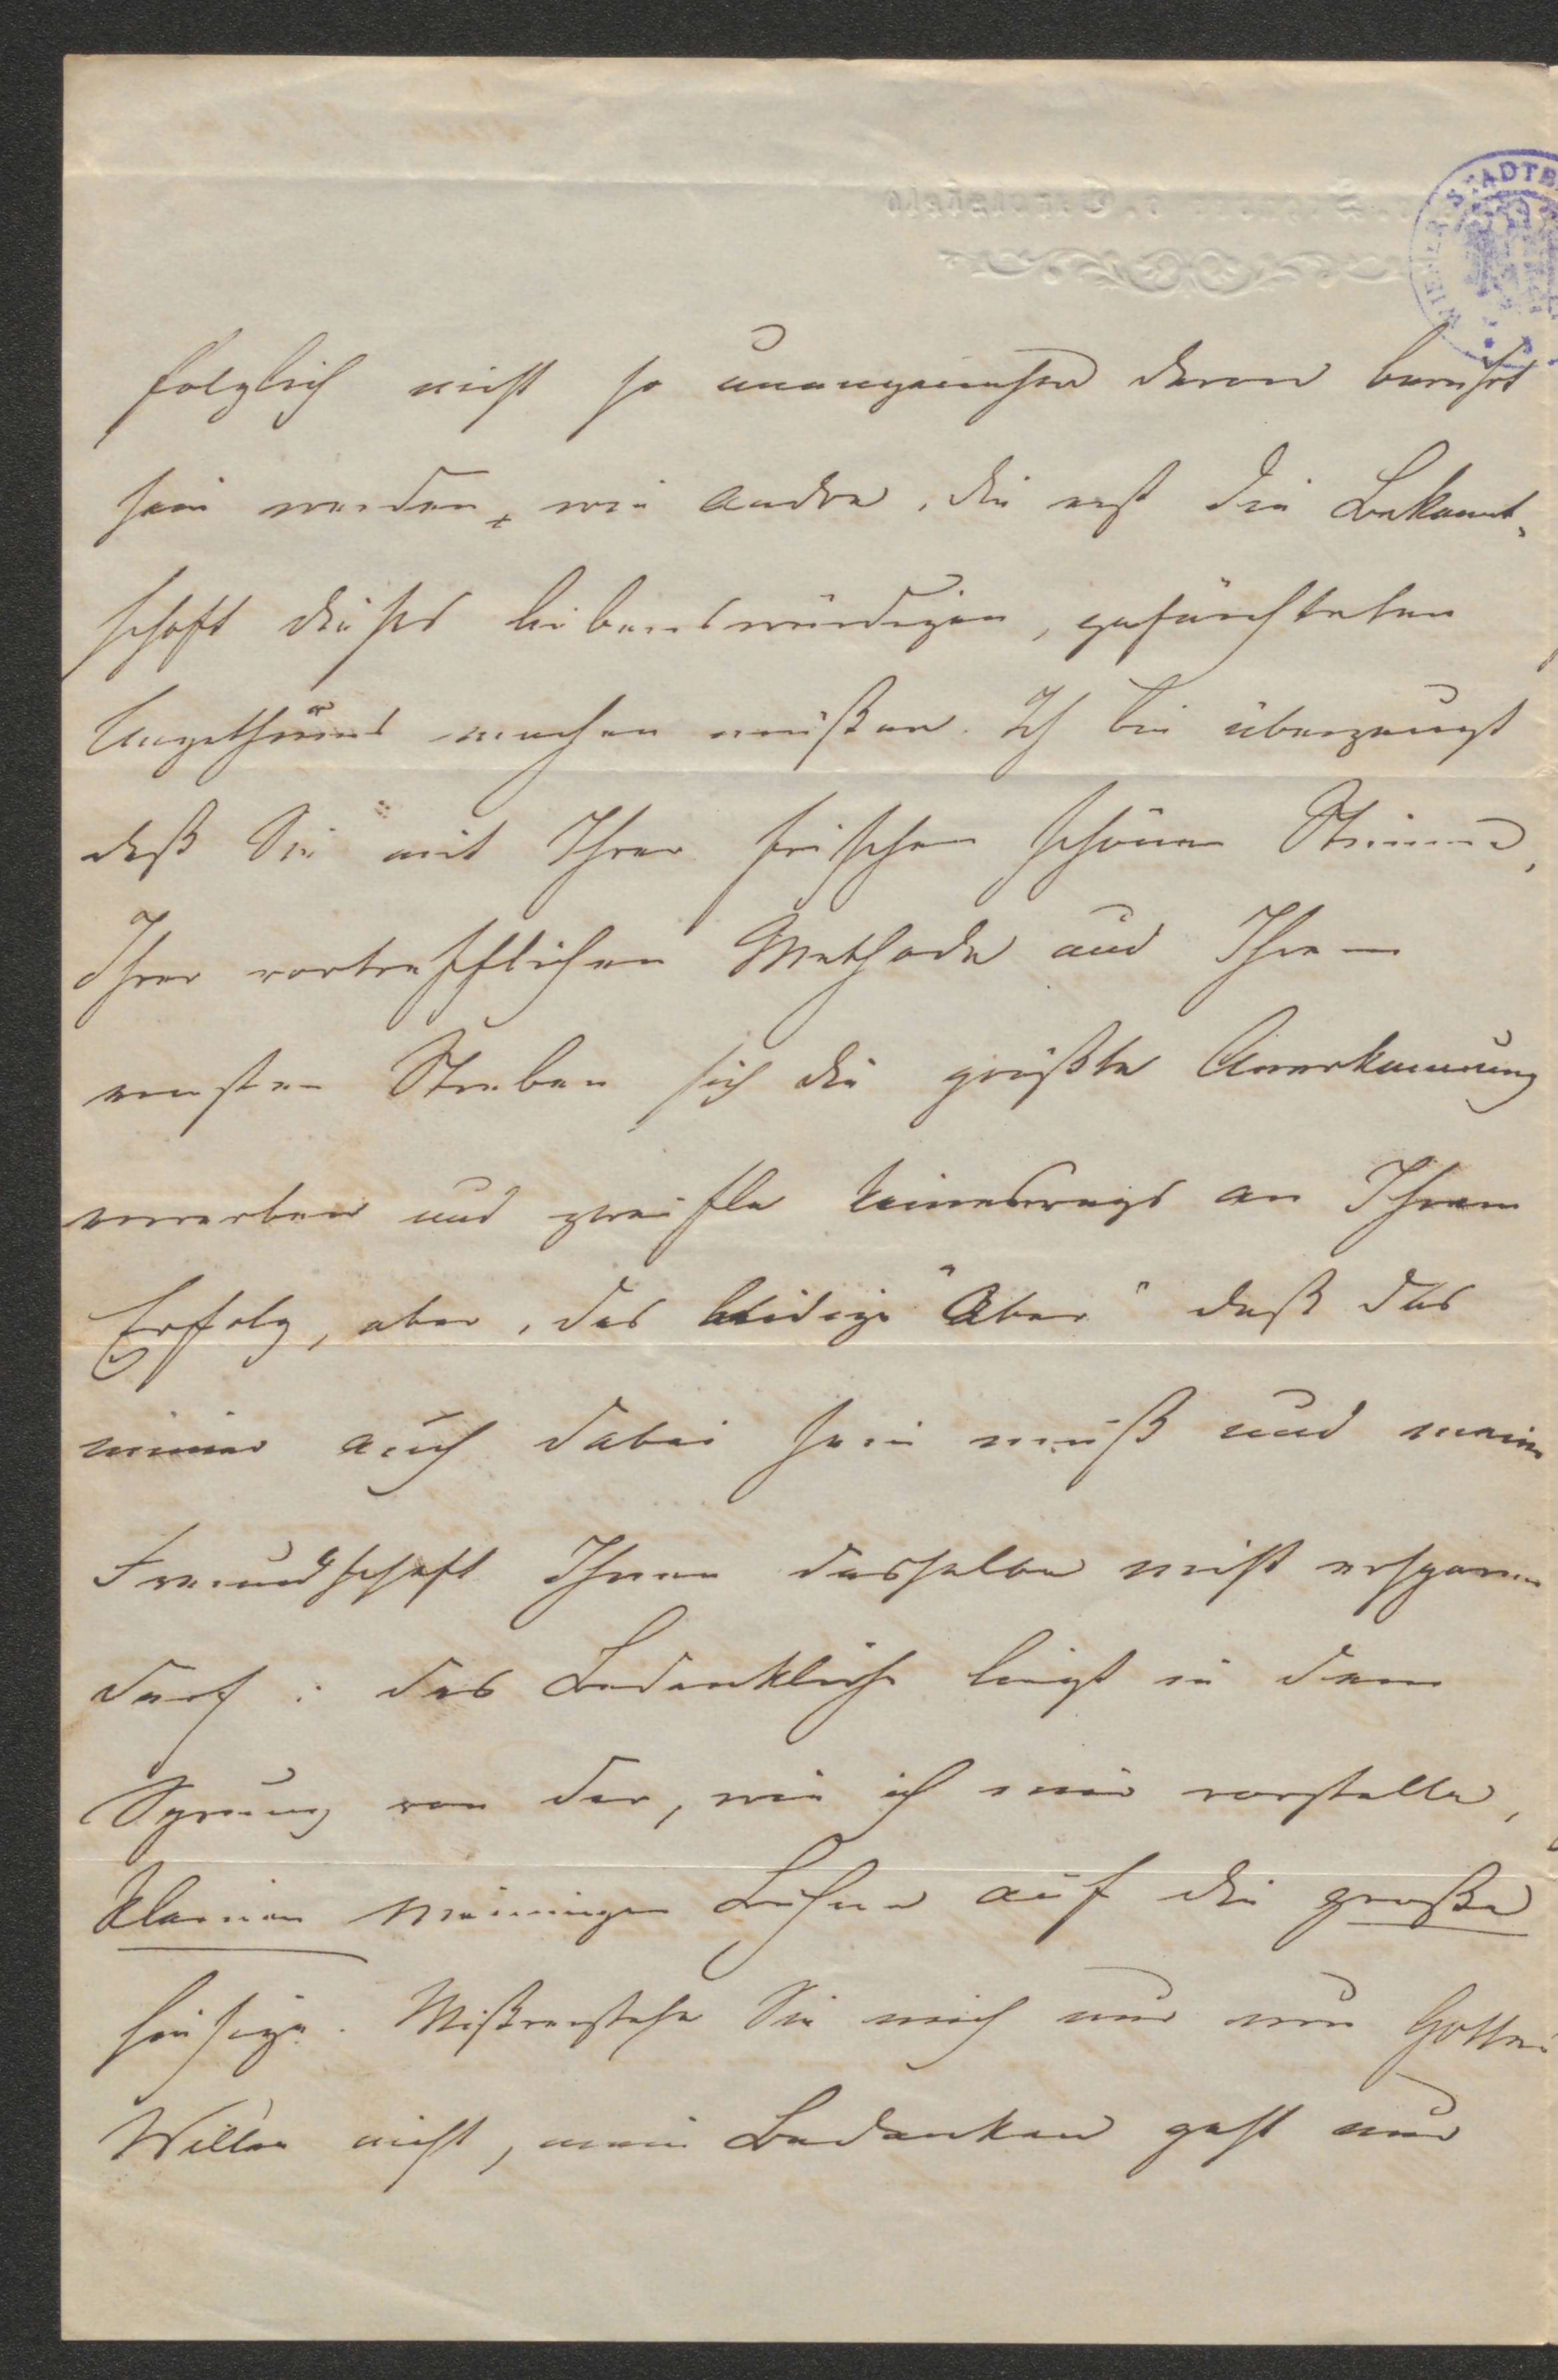 WIENER STADTB
folglich nicht so unangenehm davon berührt
sein werden, wie andre, die erst die Bekannt-
schaft dieses liebenswürdigen, gefürchteten
Ungethüms machen müßen. Ich bin überzeugt
daß Sie mit Ihrer frischen schönen Stimme,
Ihrer vortrefflichen Methode und Ihrem
ernsten Streben sich die größte Anerkennung
erwerben und zweifle keineswegs an Ihrem
Erfolg, aber, das leidige "Aber" daß das
immer auch dabei sein muß und meine
Freundschaft Ihnen dasselbe nicht ersparen
darf: das Bedenkliche liegt in dem
Sprung von der, wie ich mir vorstelle,
kleinen Meininger Bühne auf die große
hiesige. Mißverstehe Sie mich nur um Gottes
Willen nicht, mein Bedenken geht nur